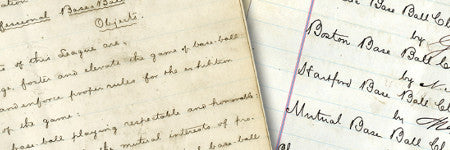 ation
fessional Base Ball
Objects.
ts of this League are,
ge, foster and elevate the game of base-ball
and enforce proper rules for the exhibition
of the game:
base-ball playing respectable and honorable
the mutual interests of pro-
base-ball
Base Ball Cl
by
Boston Base Ball C
by N.
Hartford Base Ball Cl
by
Mutual Base Ball C